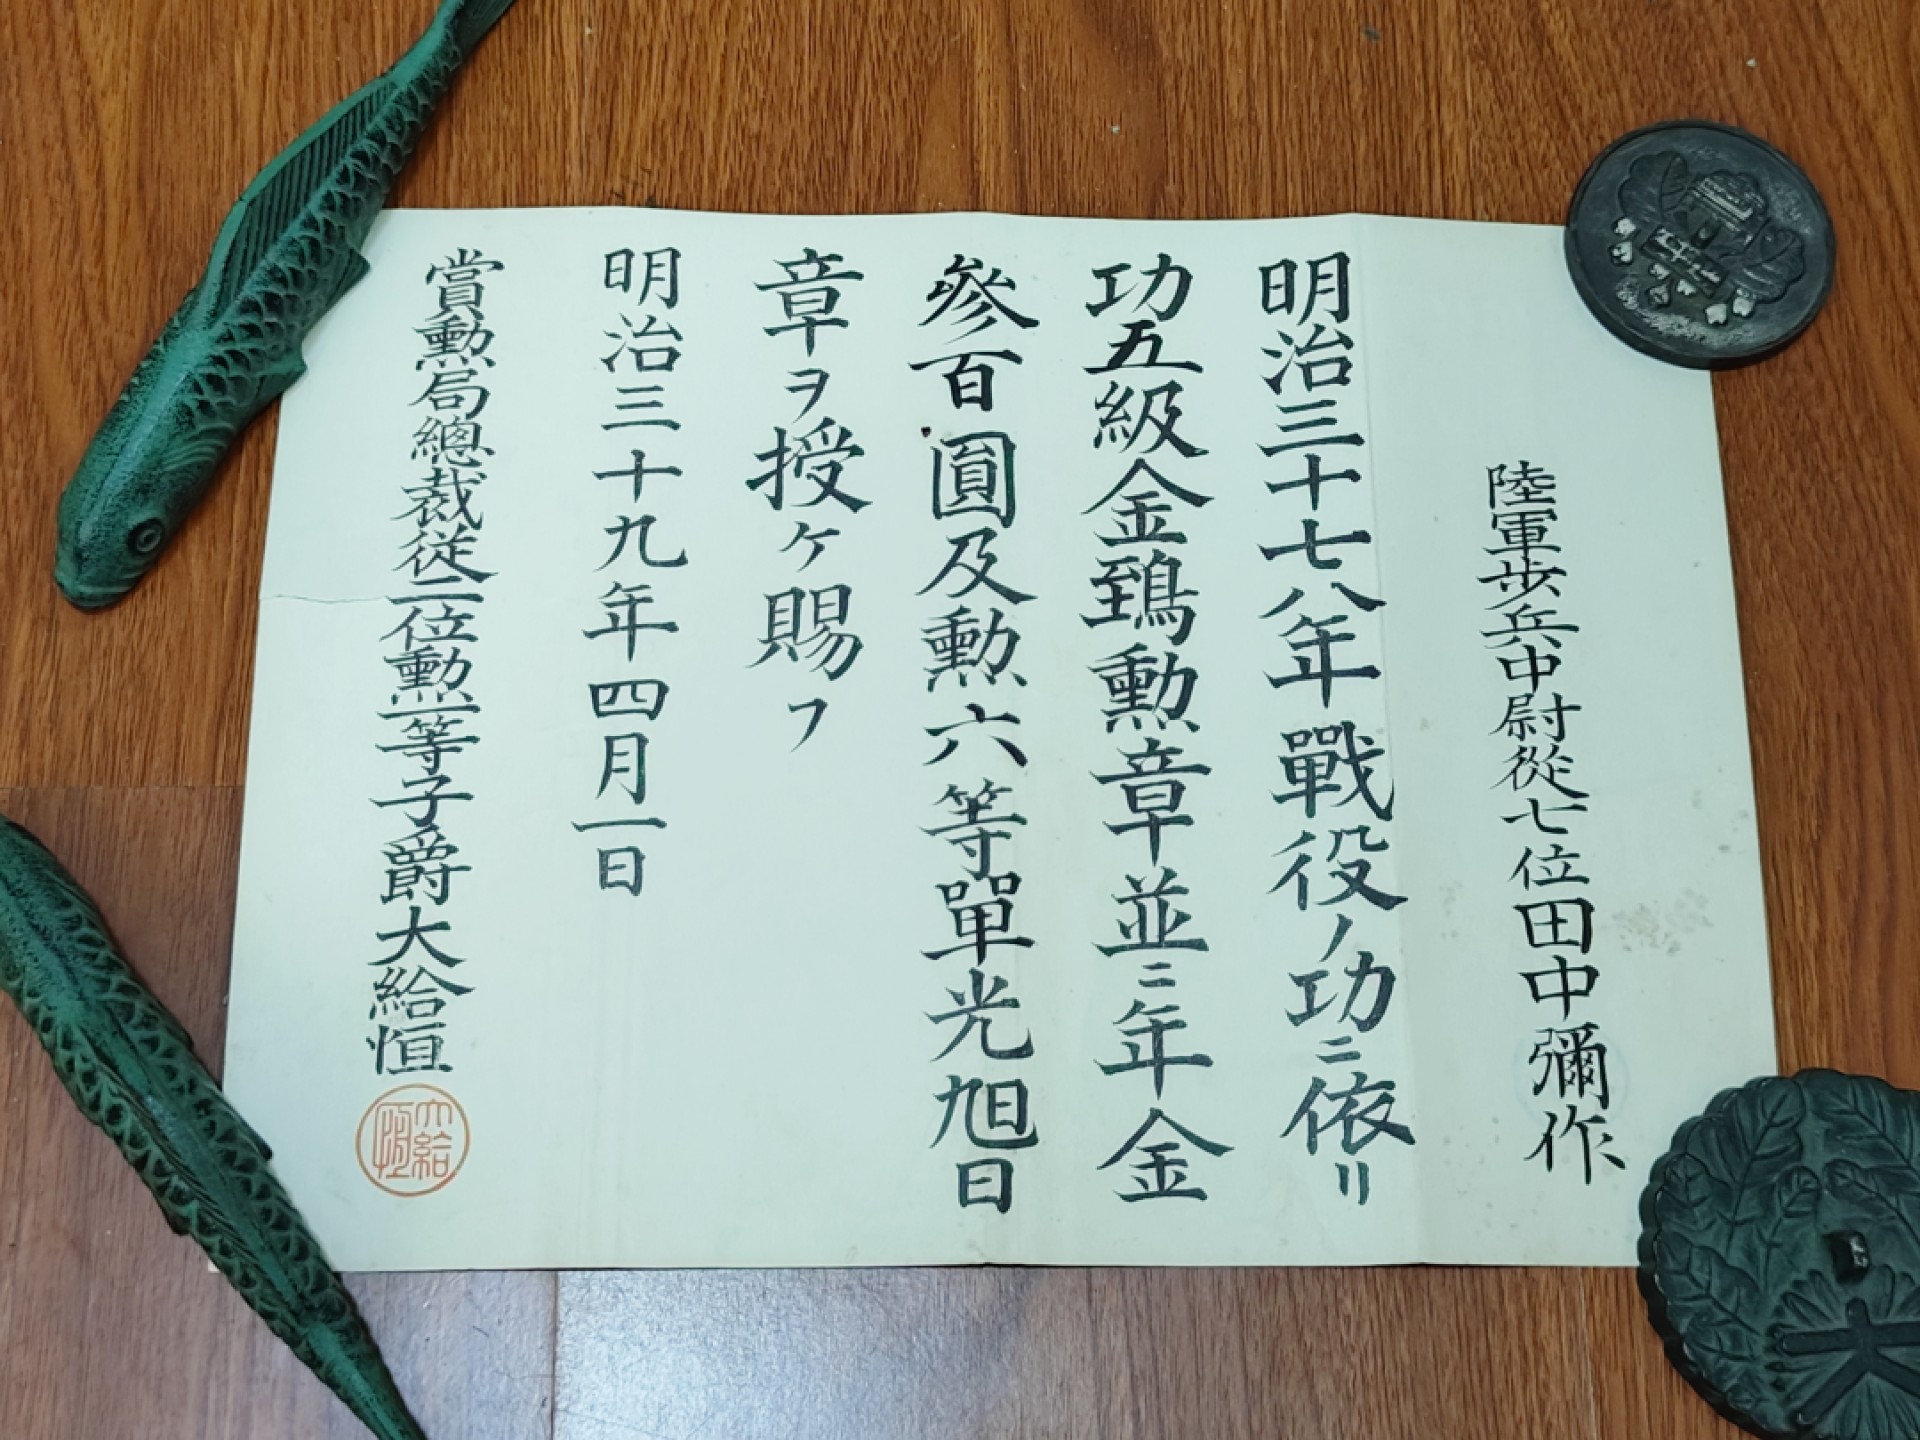 陸軍歩兵中尉從七位田中彌作
明治三十七八年戰役ノ功ニ依リ
功五級金鵄勲章並ニ年金
參百圓及勲六等單光旭日
章ヲ授ケ賜フ
明治三十九年四月一日
賞勲局總裁從二位勲一等子爵大給恒
大給恒